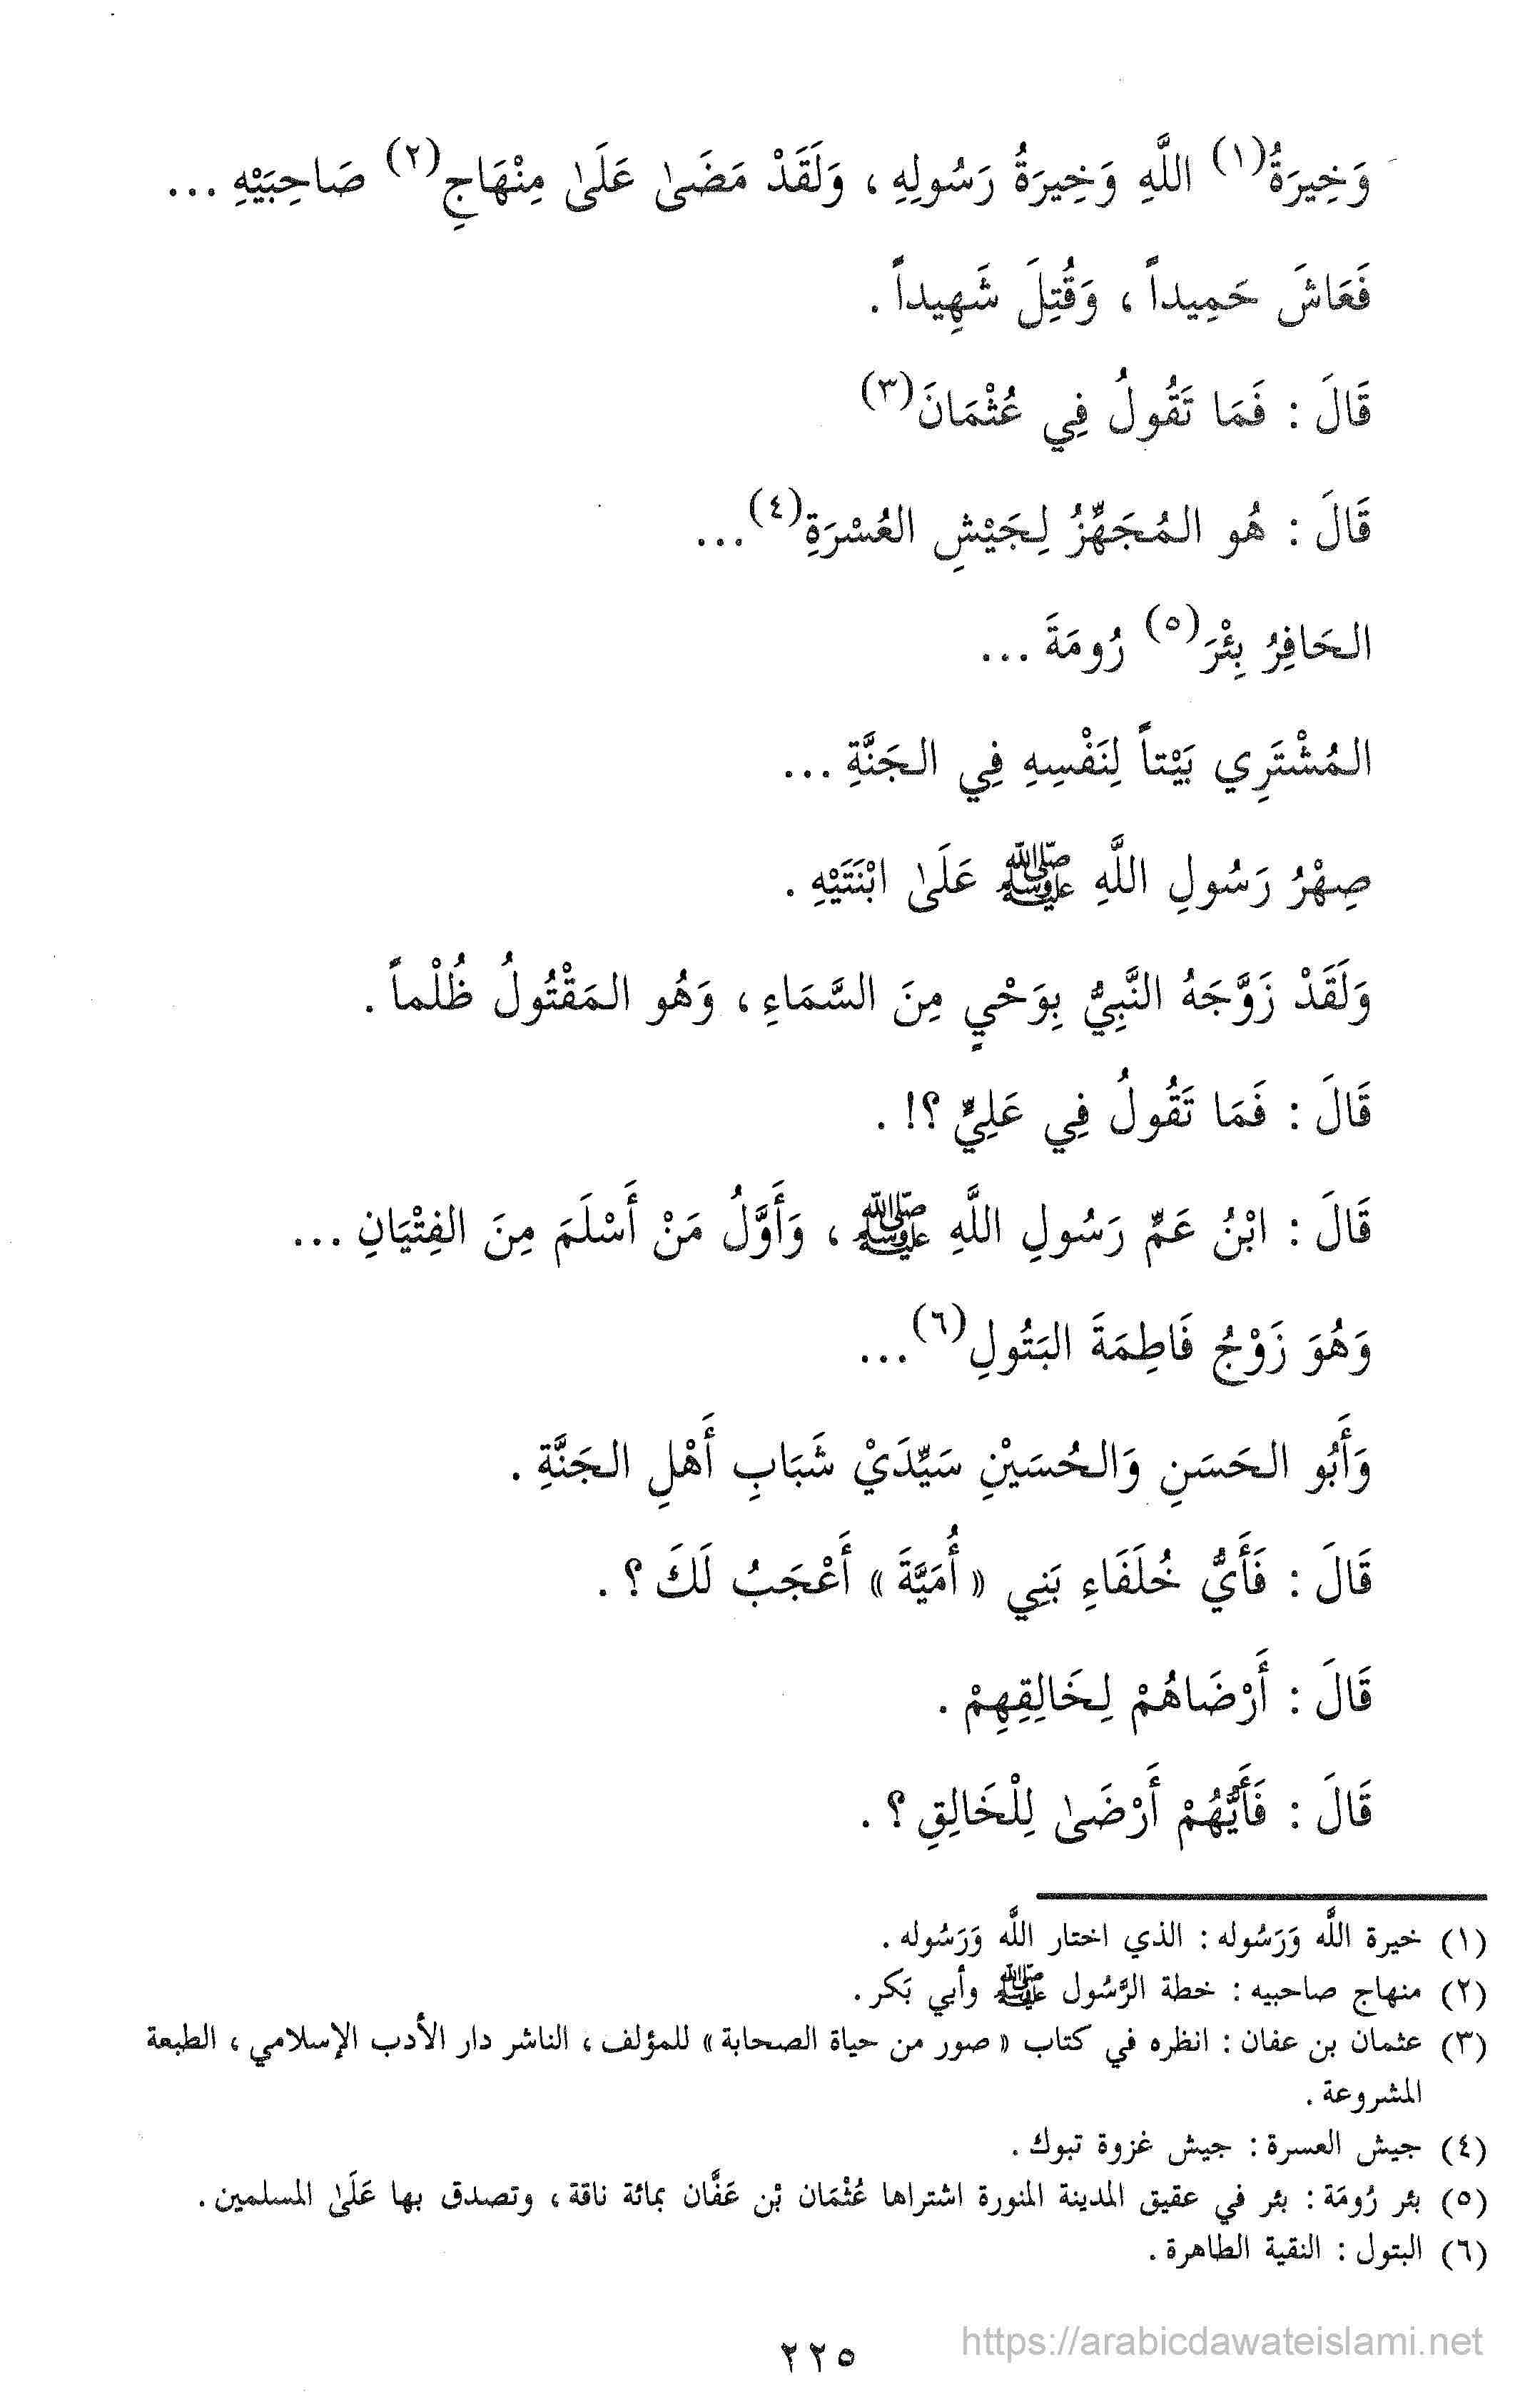 وَخِيرَةُ(١) اللَّهِ وَخِيرَةُ رَسُولِهِ ، وَلَقَدْ مَضَىٰ عَلَىٰ مِنْهَاجِ(٢) صَاحِبَيْهِ ...
فَعَاشَ حَمِيداً ، وَقُتِلَ شَهِيداً .
قَالَ : فَمَا تَقُولُ فِي عُثْمَانَ(٣)
قَالَ : هُو المُجَهِّزُ لِجَيْشِ العُسْرَةِ(٤) ...
الحَافِرُ بِئْرَ(٥) رُومَةَ ...
المُشْتَرِي بَيْتاً لِنَفْسِهِ فِي الجَنَّةِ ...
صِهْرُ رَسُولِ اللَّهِ ﷺ عَلَىٰ ابْنَتَيْهِ .
وَلَقَدْ زَوَّجَهُ النَّبِيُّ بِوَحْيٍ مِنَ السَّمَاءِ ، وَهُو المَقْتُولُ ظُلْماً .
قَالَ : فَمَا تَقُولُ فِي عَلِيٍّ ؟! .
قَالَ : ابْنُ عَمِّ رَسُولِ اللَّهِ ﷺ ، وَأَوَّلُ مَنْ أَسْلَمَ مِنَ الفِتْيَانِ ...
وَهُوَ زَوْجُ فَاطِمَةَ البَتُولِ(٦) ...
وَأَبُو الحَسَنِ وَالحُسَيْنِ سَيِّدَيْ شَبَابِ أَهْلِ الجَنَّةِ .
قَالَ : فَأَيُّ خُلَفَاءِ بَنِي « أُمَيَّةَ » أَعْجَبُ لَكَ ؟ .
قَالَ : أَرْضَاهُمْ لِخَالِقِهِمْ .
قَالَ : فَأَيُّهُمْ أَرْضَىٰ لِلْخَالِقِ ؟ .
(١) خيرة اللَّه وَرَسُوله : الذي اختار اللَّه وَرَسُوله .
(٢) منهاج صاحبيه : خطة الرَّسُول ﷺ وأبي بَكر .
(٣) عثمان بن عفان : انظره في كتاب « صور من حياة الصحابة » للمؤلف ، الناشر دار الأدب الإسلامي ، الطبعة
المشروعة .
(٤) جيش العسرة : جيش غزوة تبوك .
(٥) بئر رُومَة : بئر في عقيق المدينة المنورة اشتراها عُثْمَان بْن عَفَّان بمائة ناقة ، وتصدق بها عَلَىٰ المسلمين .
(٦) البتول : النقية الطاهرة .
٢٢٥
https://arabicdawateislami.net